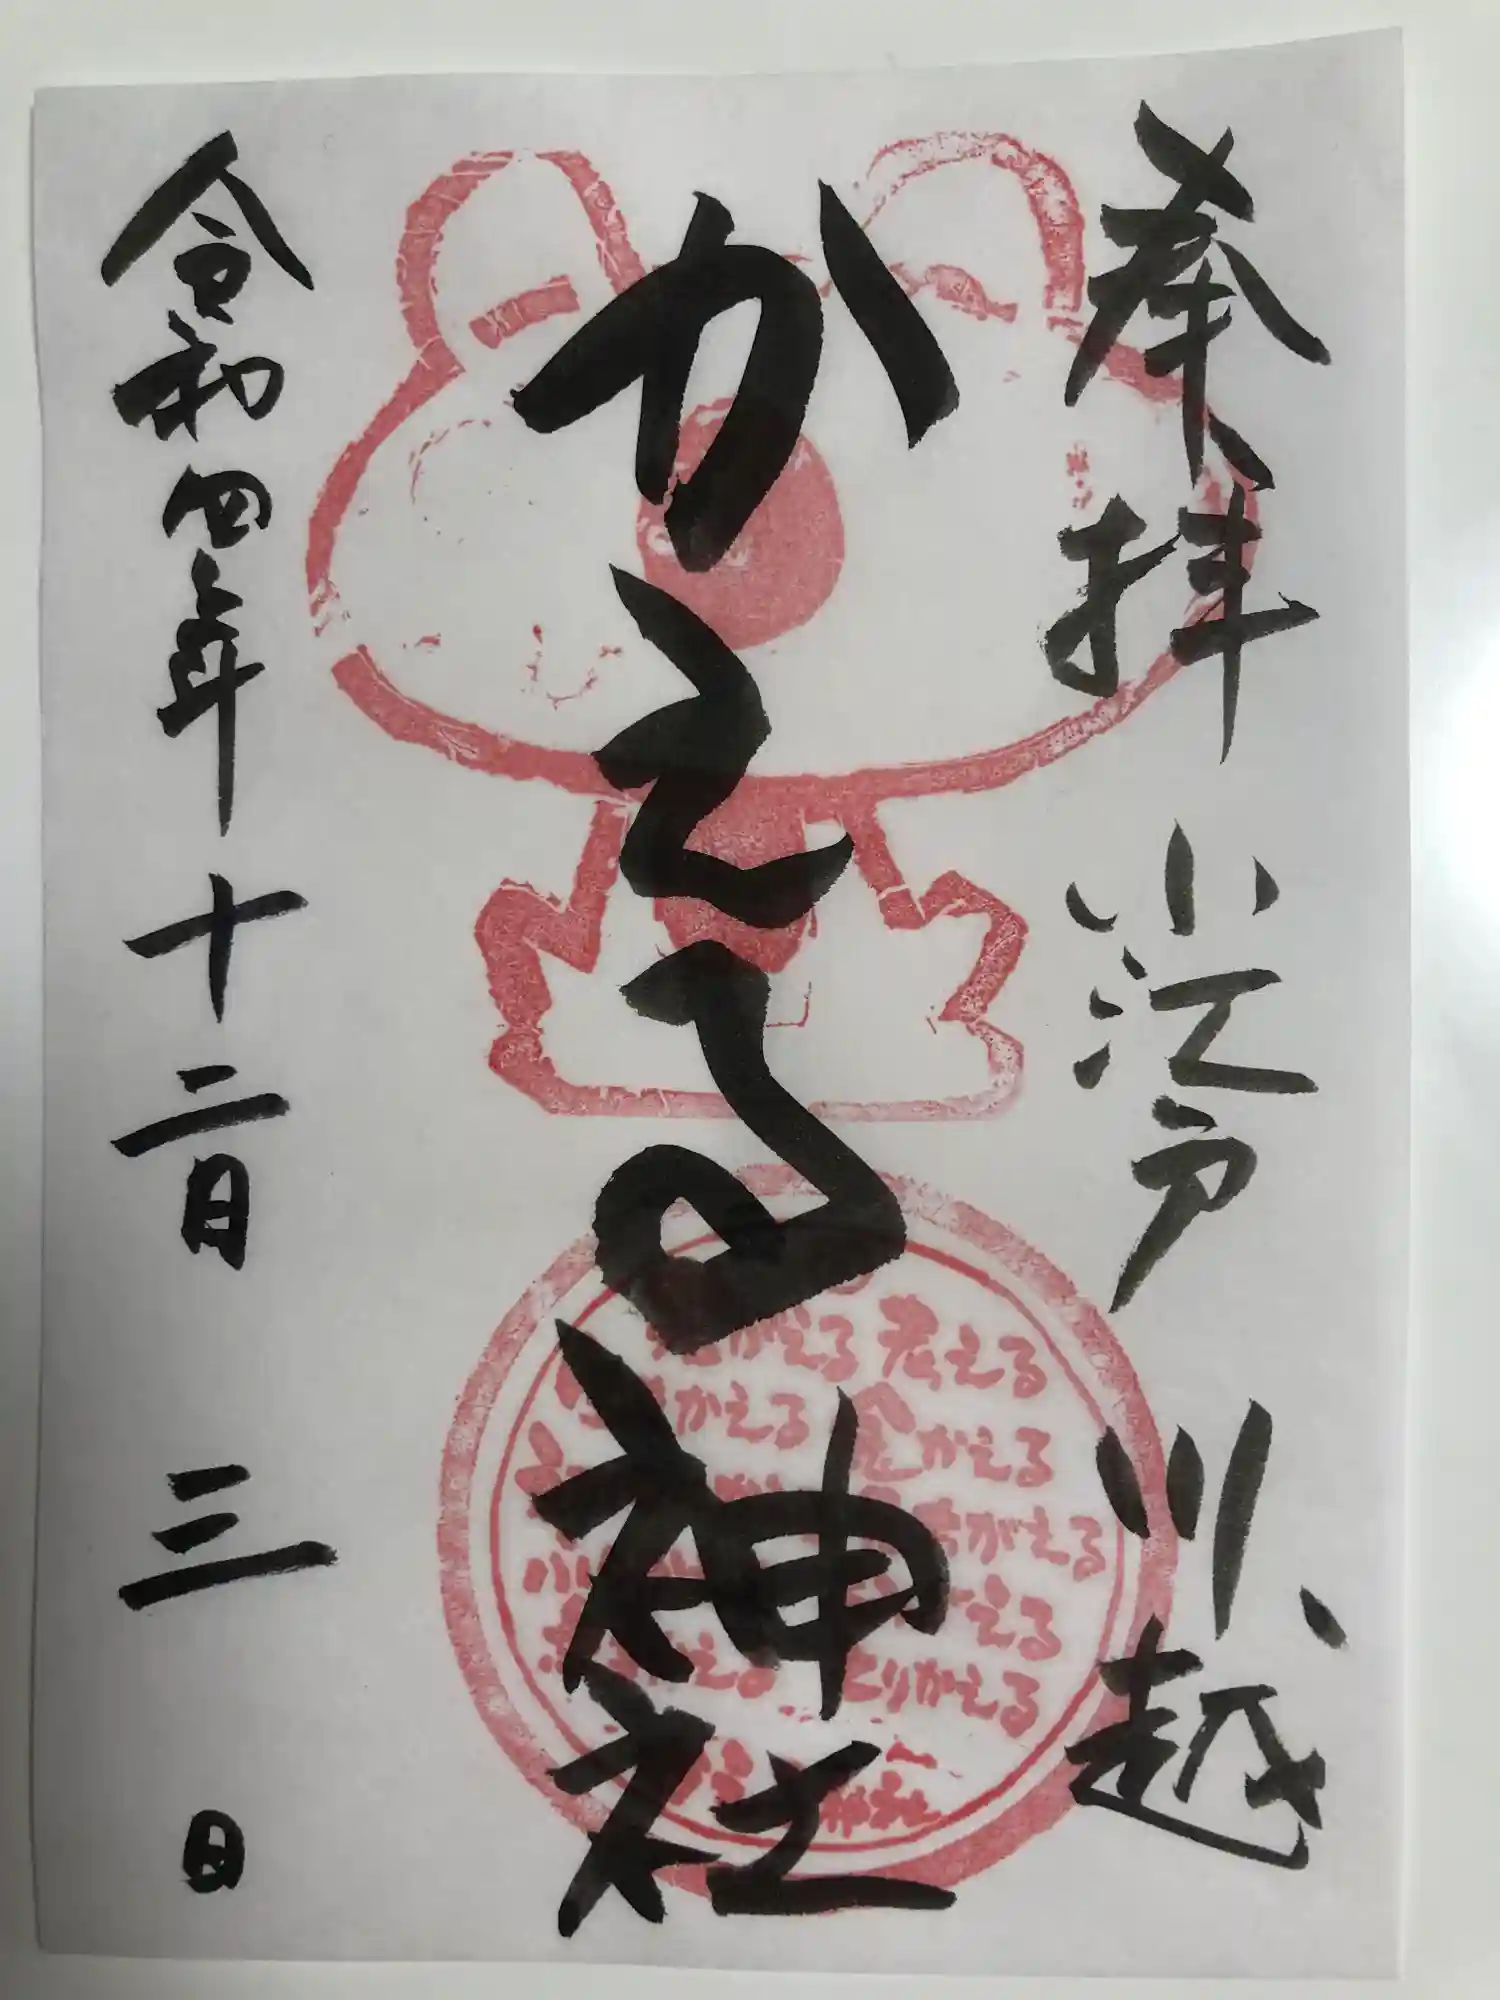 奉拝 小江戸 川越
かえる神社
令和四年十二月三日
考える
かえる 金かえる
がえる
える
える とりかえる
神社